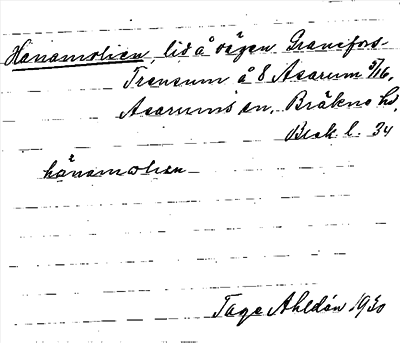 Hänamolien, lid å vägen Granefors-
Trensum å 8 Asarum 5/16,
Asarums sn, Bräkne hd,
Blek. l. 34
hänamolien
Tage Ahldén 1930